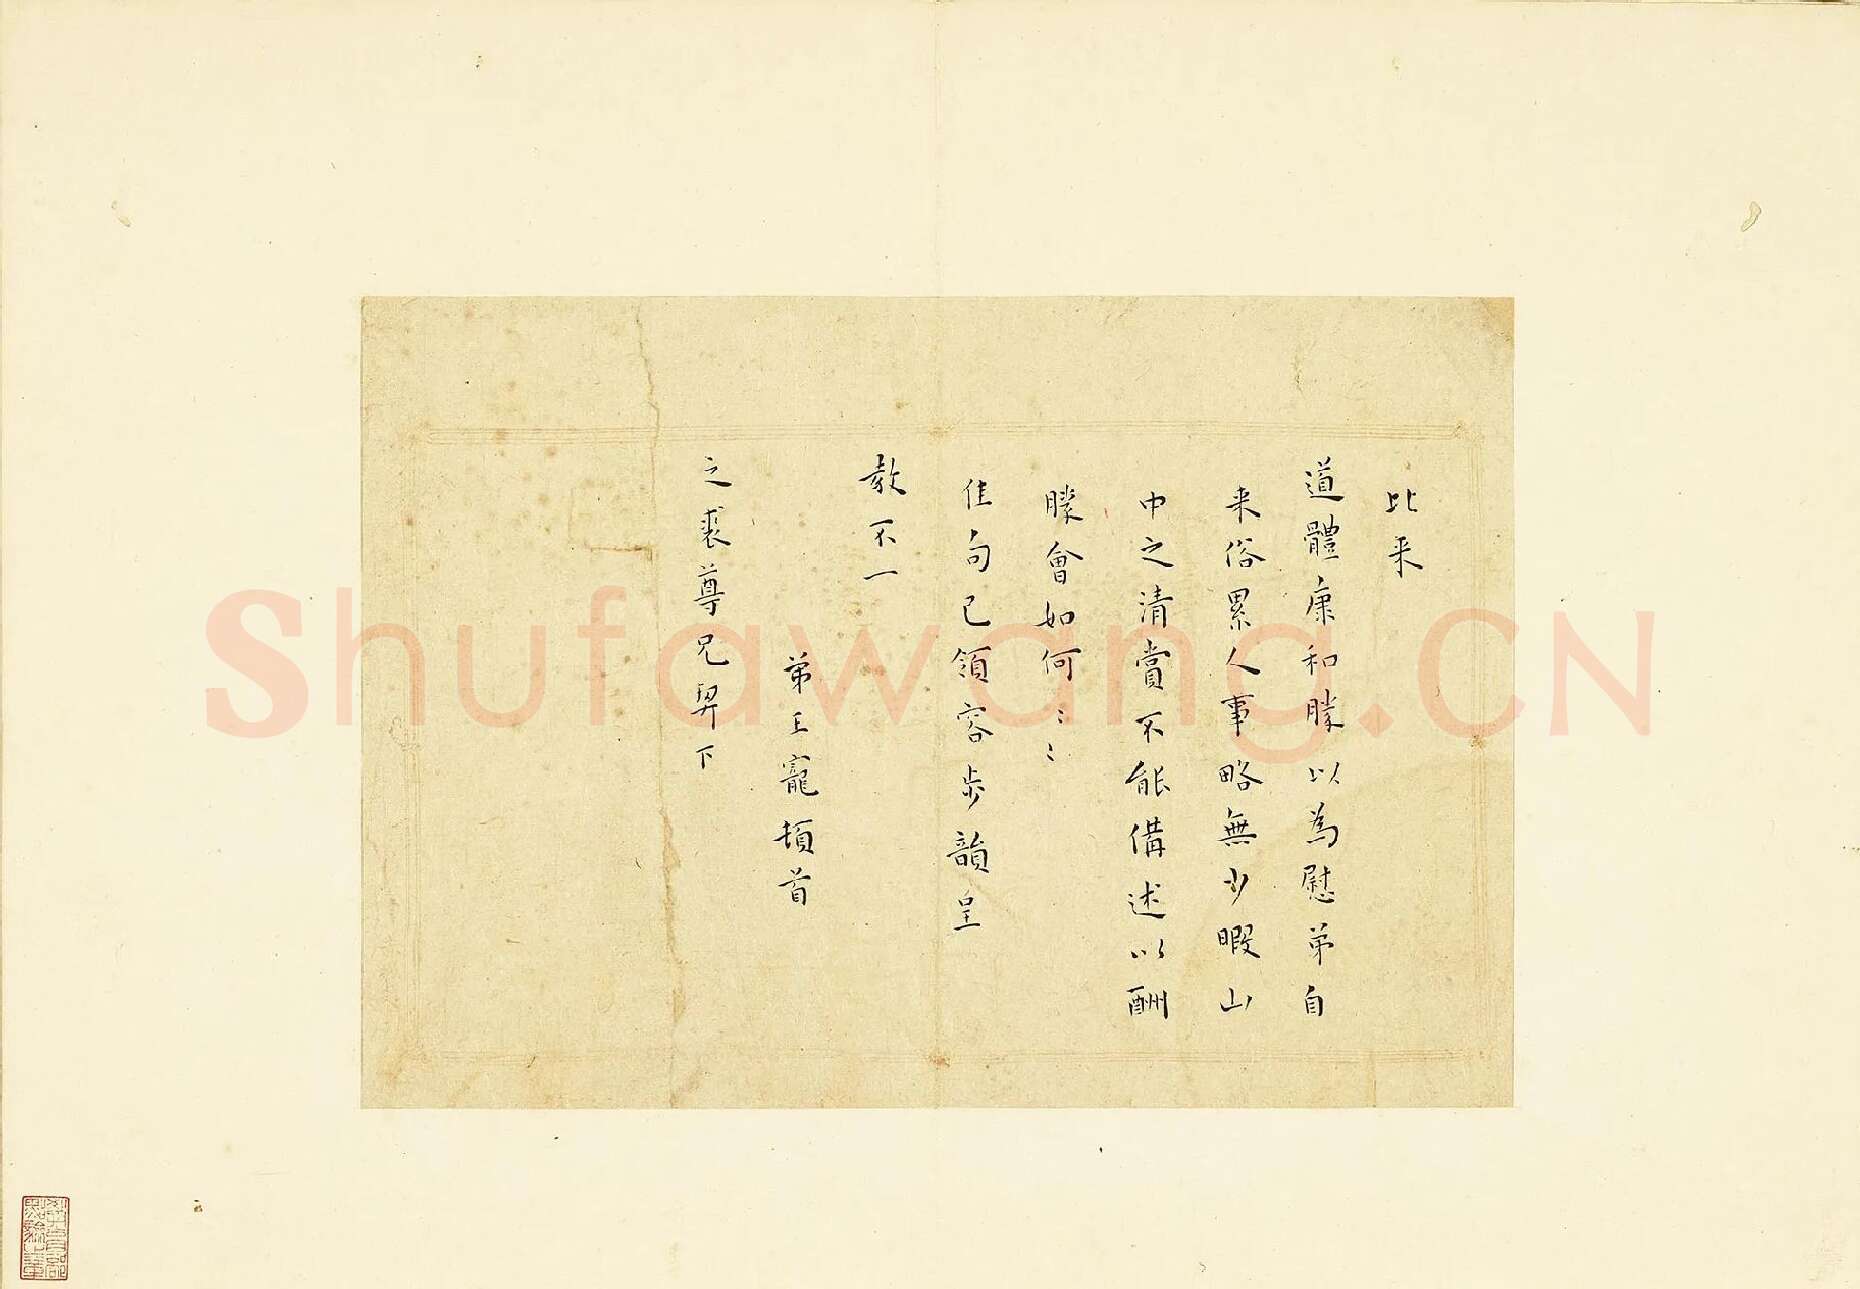 比来
道體康和勝以為慰弟自
来俗累人事略無少暇山
中之清賞不能備述以酬
勝會如何〻〻
佳句已領容步韻呈
教不一
弟王寵頓首
之裘尊兄契下
Shufawang.CN